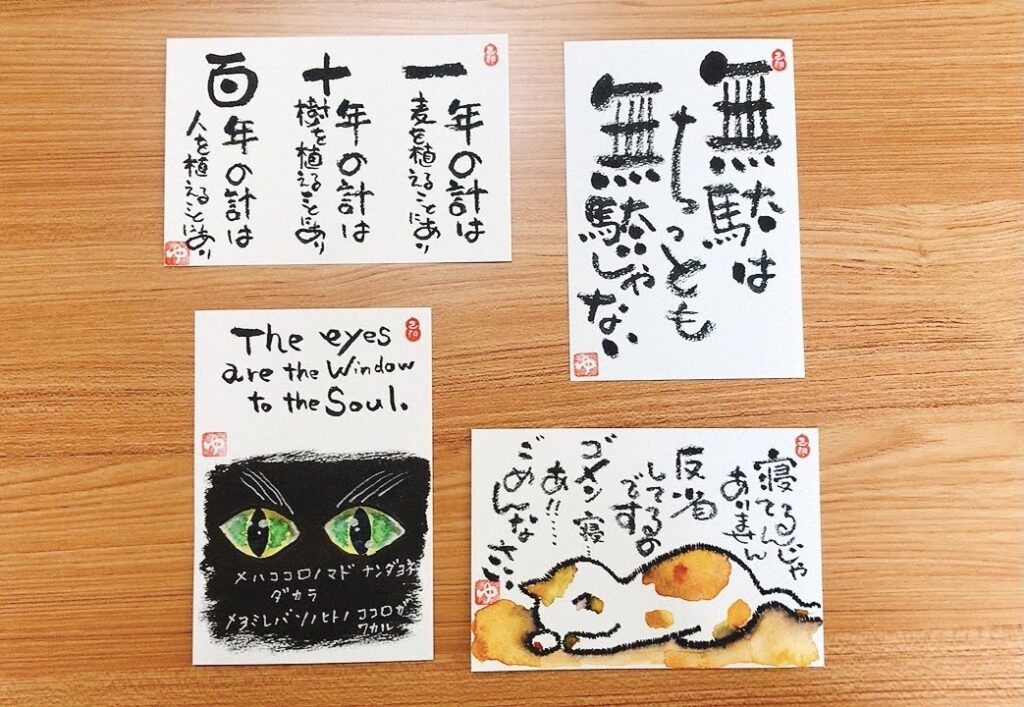 一年の計は
麦を植えることにあり
十年の計は
樹を植えることにあり
百年の計は
人を植えることにあり
ゆ
無駄は
ちっとも
無駄じゃない
ゆ
The eyes
are the Window
to the Soul.
ゆ
メハココロノマド ナンダヨネ
ダカラ
メヲミレバソノヒトノ ココロガ
ワカル
寝てるんじゃ
ありません
反省
してるの
です
ゴメン寝…
あ!!……
ごめんなさい
ゆ